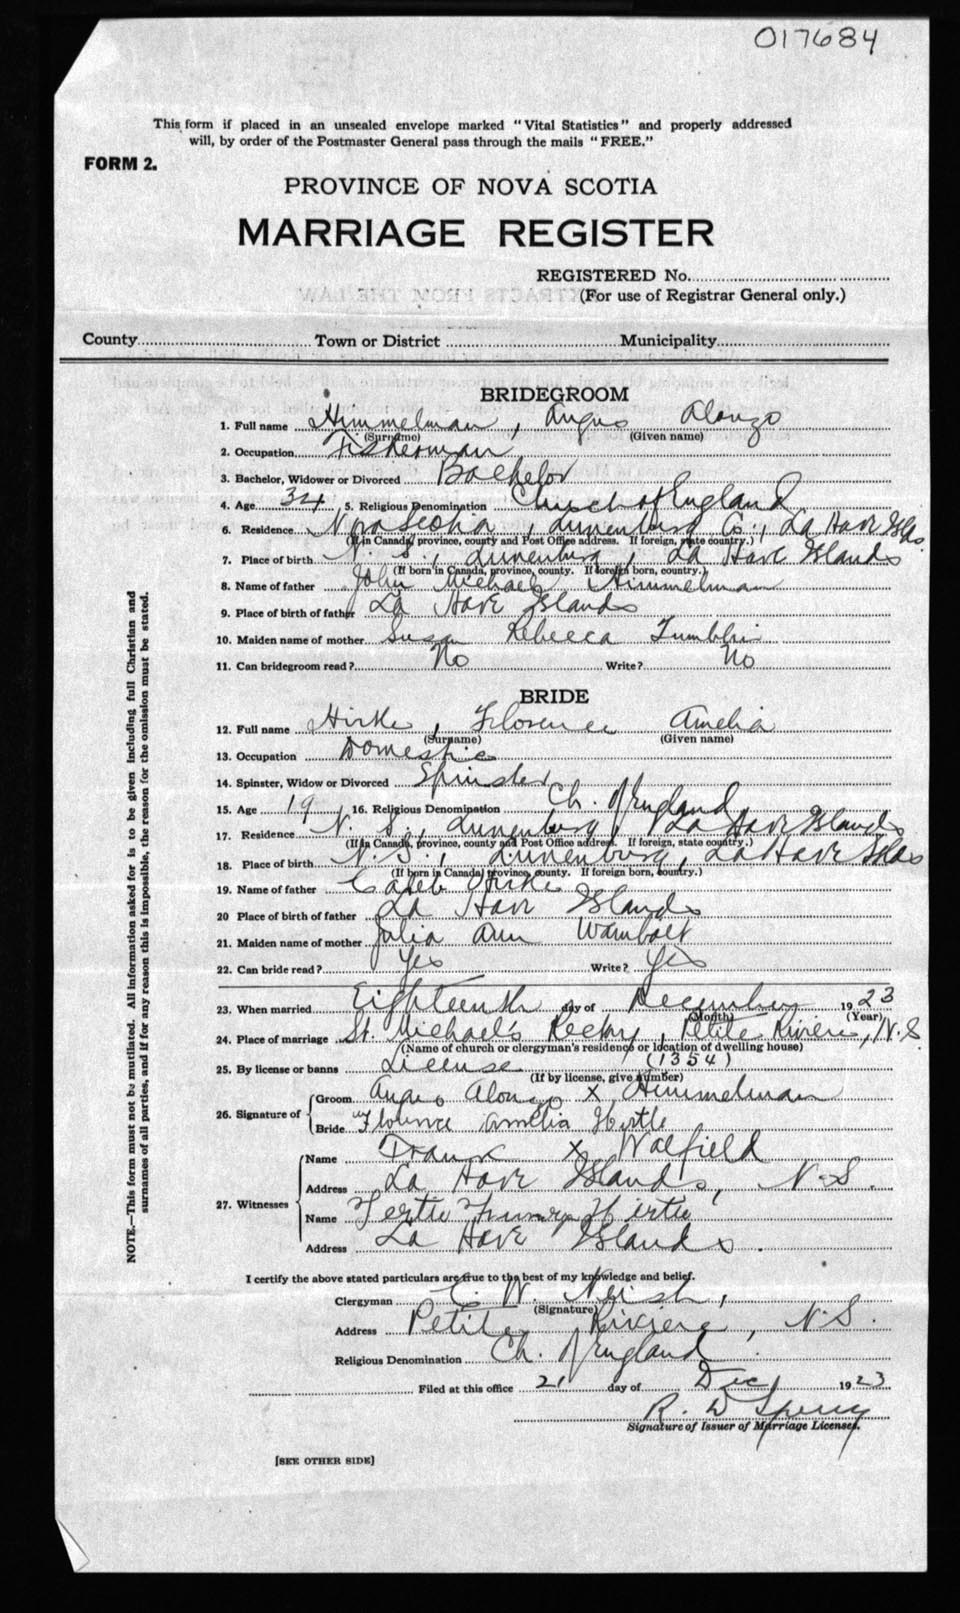 017684
This form if placed in an unsealed envelope marked "Vital Statistics" and properly addressed
will, by order of the Postmaster General pass through the mails "FREE."
FORM 2.
PROVINCE OF NOVA SCOTIA
MARRIAGE REGISTER
REGISTERED No.
(For use of Registrar General only.)
County Town or District Municipality
BRIDEGROOM
1. Full name Himmelman, Angus Alonzo
(Surname) (Given name)
2. Occupation Fisherman
3. Bachelor, Widower or Divorced Bachelor
4. Age 34 5. Religious Denomination Church of England
6. Residence Nova Scotia, Lunenburg Co., La Have Islds
(If in Canada, province, county and Post Office address. If foreign, state country.)
7. Place of birth N. S., Lunenburg, La Have Islands
(If born in Canada, province, county. If foreign born, country.)
8. Name of father John Michael Himmelman
9. Place of birth of father La Have Islands
10. Maiden name of mother Susan Rebecca
11. Can bridegroom read? No Write? No
BRIDE
12. Full name Hirtle, Florence Amelia
(Surname) (Given name)
13. Occupation Domestic
14. Spinster, Widow or Divorced Spinster
15. Age 19 16. Religious Denomination Ch. of England
17. Residence N. S., Lunenburg, La Have Islands
(If in Canada, province, county and Post Office address. If foreign, state country.)
18. Place of birth N. S., Lunenburg, La Have Islds
(If born in Canada, province, county. If foreign born, country.)
19. Name of father Caleb Hirtle
20 Place of birth of father La Have Islands
21. Maiden name of mother Julia Ann Wambolt
22. Can bride read? Yes Write? Yes
23. When married Eighteenth day of December 1923
(Month) (Year)
24. Place of marriage St. Michael's Rectory, Petite Riviere, N.S.
(Name of church or clergyman's residence or location of dwelling house)
25. By license or banns License (1354)
(If by license, give number)
26. Signature of Groom Angus Alonzo X Himmelman
Bride Florence Amelia Hirtle
27. Witnesses Name Frank X Walfield
Address La Have Islands, N.S.
Name Hirtle
Address La Have Islands.
I certify the above stated particulars are true to the best of my knowledge and belief.
Clergyman C. W. Neish,
(Signature)
Address Petite Riviere, N.S.
Religious Denomination Ch. of England.
Filed at this office 21 day of Dec 1923
R. D Sperry
Signature of Issuer of Marriage Licenses.
[SEE OTHER SIDE]
NOTE.—This form must not be mutilated. All information asked for is to be given including full Christian and
surnames of all parties, and if for any reason this is impossible, the reason for the omission must be stated.